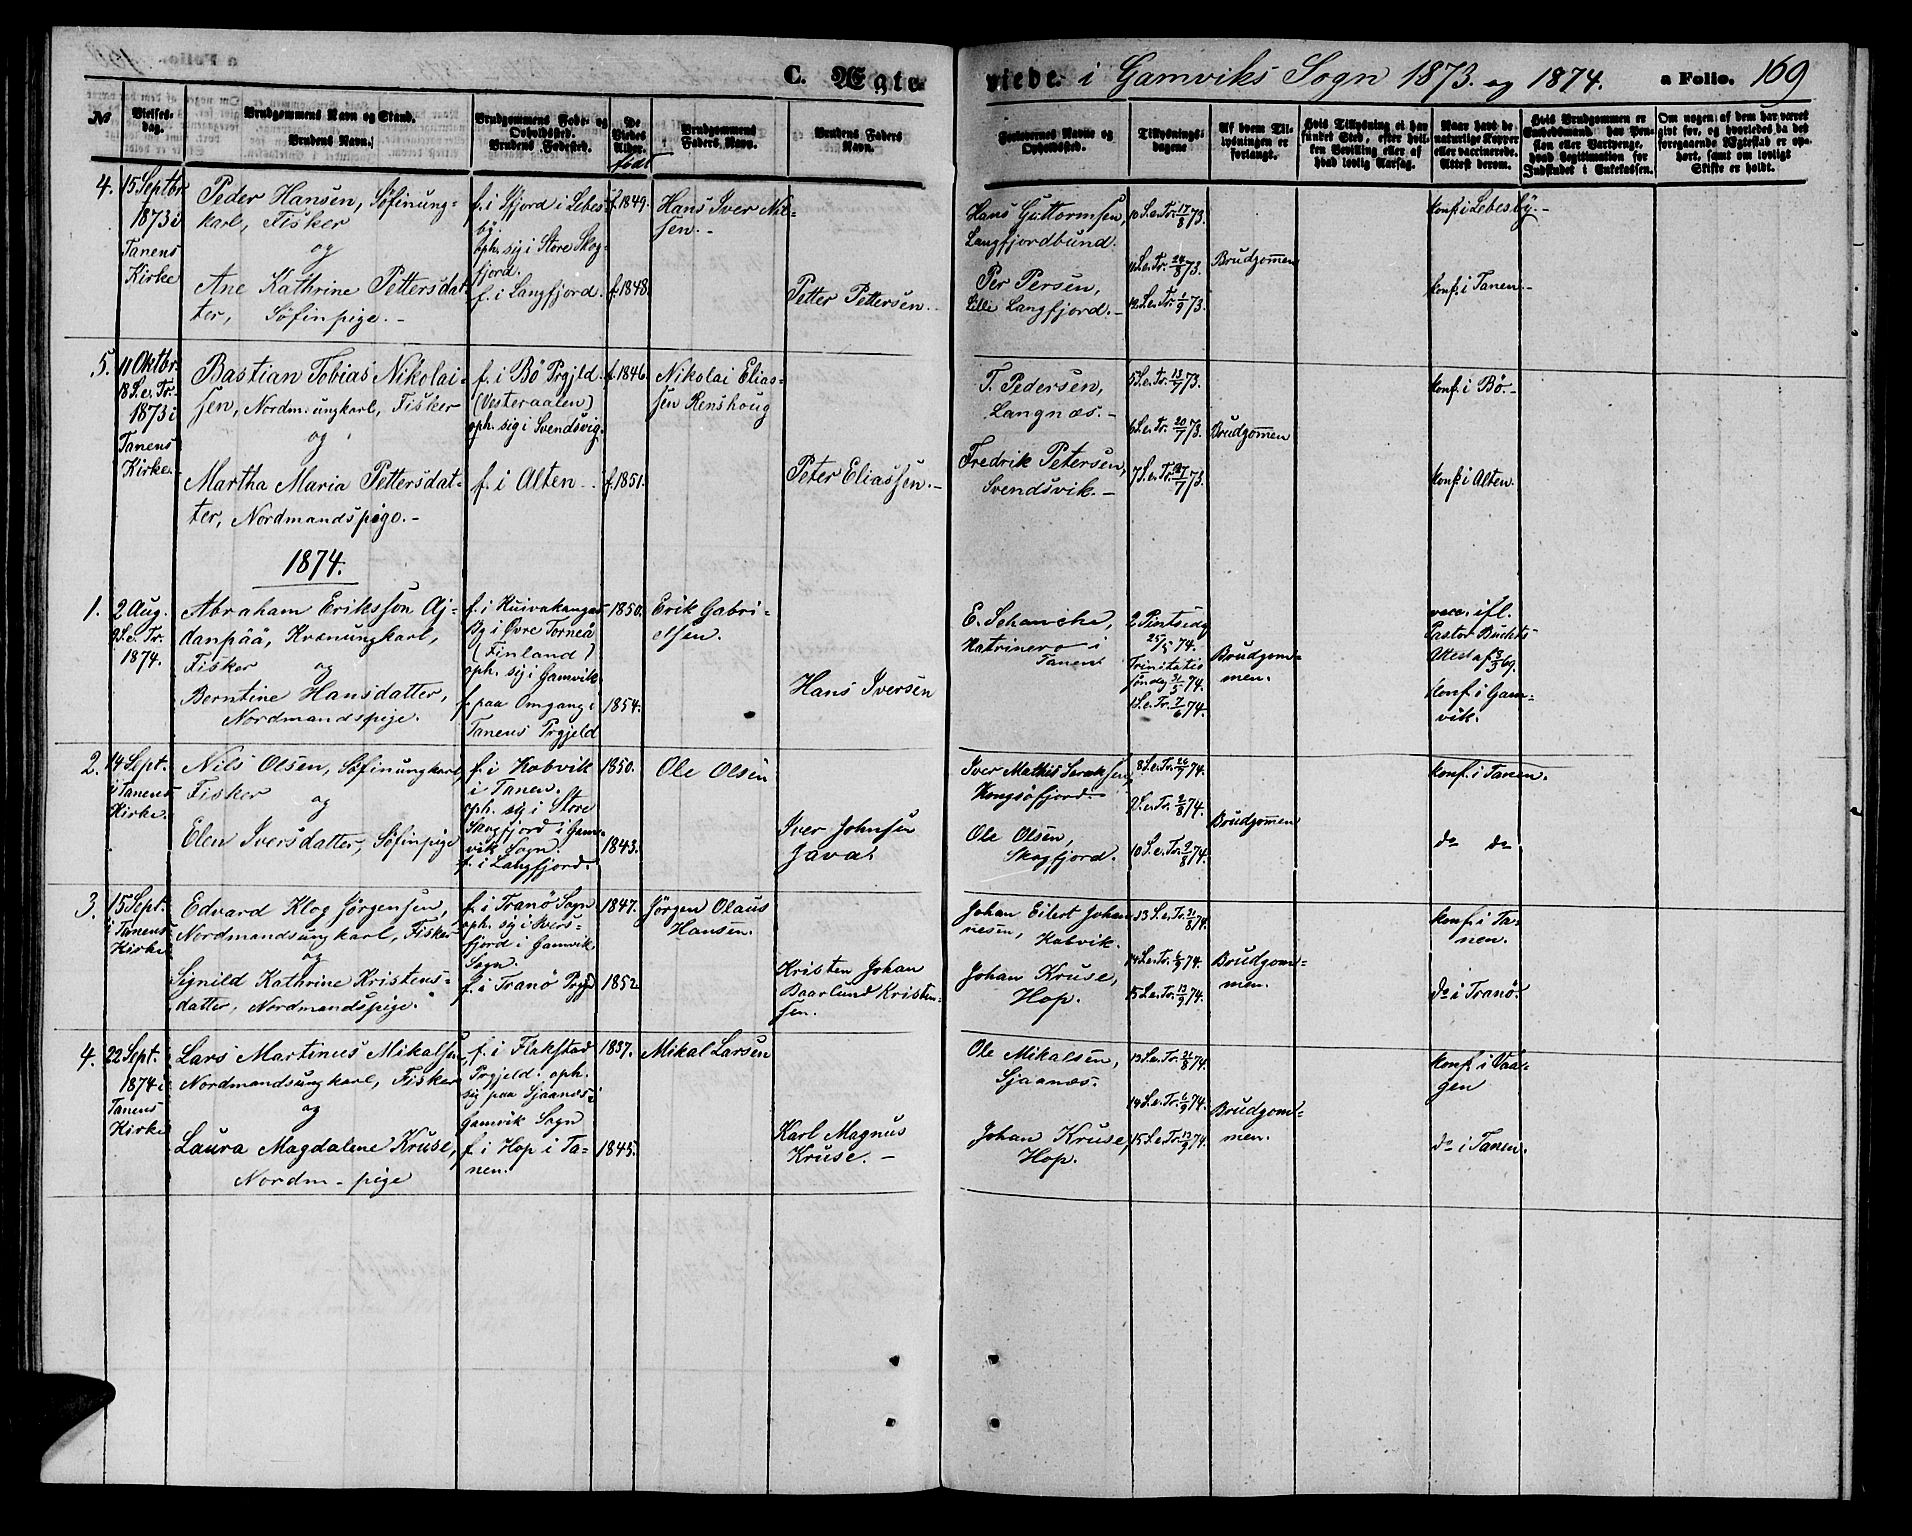 C. Ægte
viede i Gamviks Sogn 1873. og 1874. a Folio. 169
№
Vielses-
dag.
Brudgommens Navn og Stand.
Brudens Navn.
Brudgommens Føde- og
Opholdssted.
Brudens Fødested.
De
Viedes
Alder.
født
Brudgommens
Faders Navn.
Brudens Faders
Navn.
Forlovernes Navne og
Opholdssted.
Tillysnings-
dagene
Af hvem Til-
lysningen er
forlangt.
Hvis Tillysning ei har
fundet Sted, efter hvil-
ken Bevilling eller af
hvad lovlig Aarsag.
Naar havt de
naturlige Kopper
eller vaccinerede.
Attest derom.
Hvis Brudgommen er
Embedsmand, har Pen-
sion eller Vartpenge,
hvad Legitimation for
Indskudet i Enkekassen.
Om nogen af dem har været
gift før, og hvorledes da det
foregaaende Ægteskab er opa-
hørt, samt om lovligt
Skifte er holdt.
4.
15 Septbr
1873 i
Tanens
Kirke
Peder Hansen, Søfinung-
karl, Fisker
og
Ane Kathrine Pettersdat
ter, Søfinpige. -
f. i Ifjord i Lebes
by.
oph. sig i Store Skog-
fjord.
f. i Langfjord.
f. 1849.
f. 1848.
Hans Iver Nil-
sen. -
Petter Pettersen. -
Hans Guttormsen,
Langfjordbund.
Per Persen,
Lille Langfjord. -
10 S.e.Tr. 17/8 73.
11 S.e.Tr. 24/8 73.
12 S.e.Tr. 1/9 73.
Brudgommen
Konf. i Lebesby. -
Konf. i Tanen. -
5.
11 Oktbr.
18 S.e.Tr.
1873 i
Tanens
Kirke.
Bastian Tobias Nikolai-
sen, Nordm. ungkarl, Fisker
og
Martha Maria Pettersdat-
ter, Nordmandspige. -
f. i Bö Prgjld.
(Vesteraalen)
oph. sig i Svendsvig.
f. i Alten -
f. 1846.
f. 1851.
Nikolai Elias-
sen Renshoug
Peter Eliassen. -
T. Pedersen,
Langnæs. -
Fredrik Petersen,
Svendsvik. -
5 S.e.Tr. 13/7 73.
6 S.e.Tr. 20/7 73.
7 S.e.Tr. 27/7 73.
Brudgommen
Konf. i Bö. -
Konf. i Alten.
1874.
1.
2 Aug.
9 S.e.Tr.
1874.
Abraham Eriksson Aj-
danpää, Kvænungkarl,
Fisker
og
Berntine Hansdatter,
Nordmandspige.
f. i Kuivakangas
By i Øvre Torneå
(Finland)
oph. sig i Gamvik.
f. paa Omgang i
Tanens Prgjeld
1850.
1854.
Erik Gabri-
elsen.
Hans Iversen
E. Schanche,
i
Tanen
2 Pintsedg
25/5 74.
Trinitatis
søndag 31/5 74.
1 S.e.Tr. 7/6 74.
Brudgom-
men.
vacc. ifl.
Pastor Buchts
Attest af 3/3 69.
Konf. i Gam-
vik.
2.
14 Sept.
i Tanens
Kirke.
Nils Olsen, Søfinungkarl,
Fisker
og
Elen Iversdatter, Søfinpige
f. i Kobvik
i Tanen.
oph. sig i Store
Skogfjord i Gam-
vik Sogn.
f. i Langfjord.
1850.
1843.
Ole Olsen
Iver Johnsen
Java.
Iver Mathis Saraksen,
Kongsöfjord. -
Ole Olsen,
Skogfjord.
8 S.e.Tr. 26/7 74.
9 S.e.Tr. 2/8 74.
10 S.e.Tr. 9/8 74.
Brudgommen
Konf. i Tanen.
do do
3.
15 Sept.
i Tanens
Kirke.
Edvard Klog Jørgensen,
Nordmandsungkarl, Fisker
og
Signild Kathrine Kristens-
datter, Nordmandspige.
f. i Tranö Sogn
oph. sig i Ivers-
fjord i Gamvik
Sogn.
f. i Tranö Prgj
1847.
1852
Jörgen Olaus
Hansen.
Kristen Johan
Baarlund Kristen-
sen.
Johan Eilert Johan
nesen, Kobvik.
Johan Kruse,
Hop.
13 S.e.Tr. 31/8 74.
14 S.e.Tr. 6/9 74.
15 S.e.Tr. 13/9 74.
Brudgom-
men.
Konf. i Ta-
nen.
do i Tranö.
4.
22 Sept.
1874 i
Tanens
Kirke
Lars Martinus Mikalsen
Nordmandsungkarl, Fisker
og
Laura Magdalene Kruse,
Nordm - pige
f. i Flakstad
Prgjeld. oph.
sig paa Sjaanæs i
Gamvik Sogn
f. i Hop i Ta-
nen.
1837.
1845.
Mikal Larsen
Karl Magnus
Kruse. -
Ole Mikalsen,
Sjaanæs.
Johan Kruse,
Hop.
13 S.e.Tr. 31/8 74.
14 S.e.Tr. 6/9 74.
15 S.e.Tr. 13/9 74.
Brudgom-
men.
Konf. i Vaa-
gen
do i Tanen.